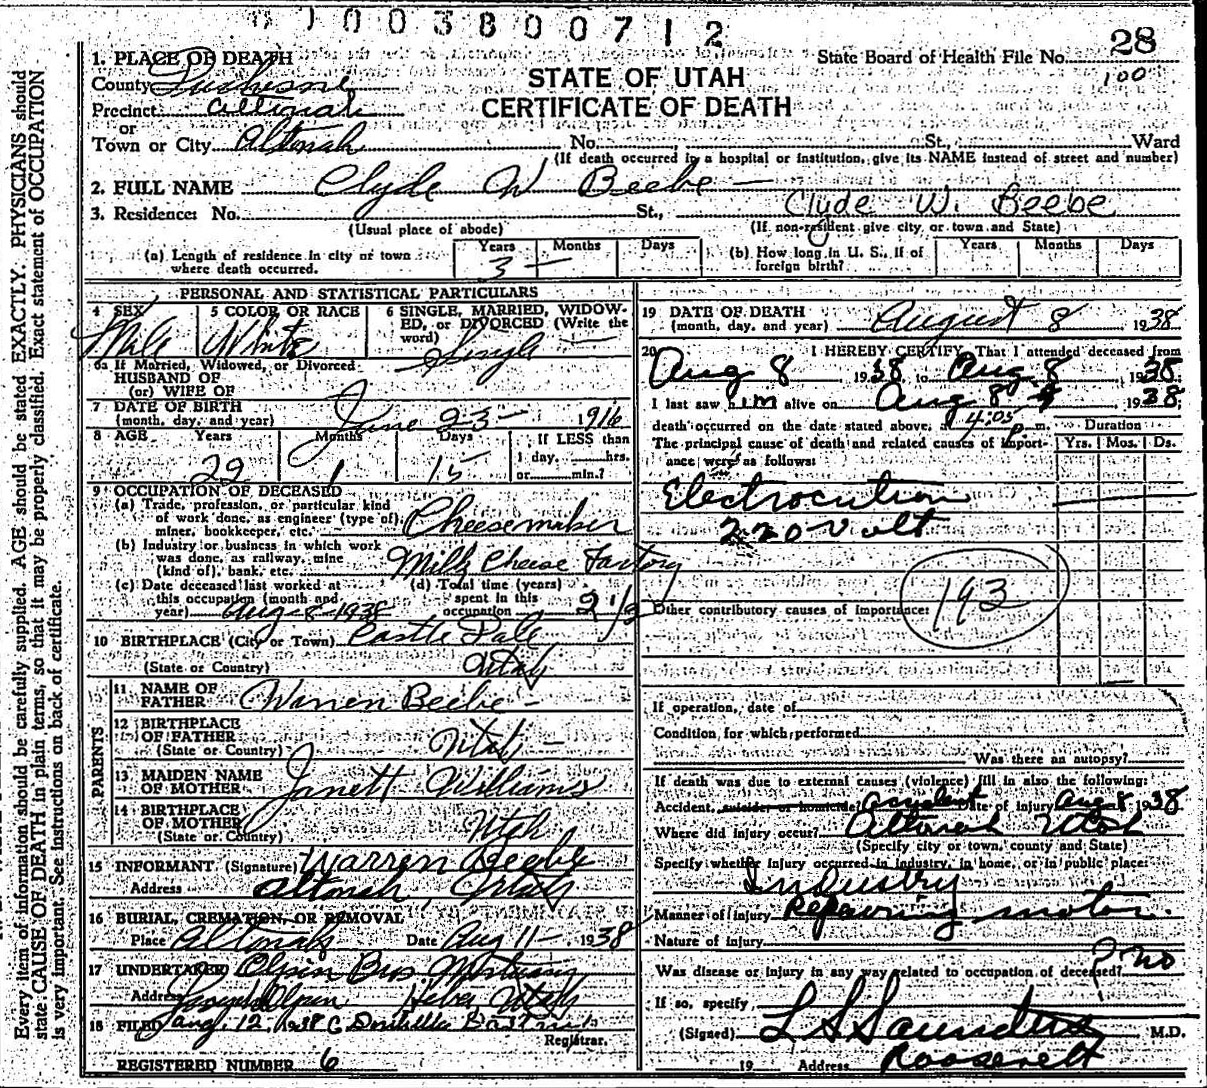 0 1 0 0 3 8 0 0 7 1 2
State Board of Health File No. 28
100
STATE OF UTAH
CERTIFICATE OF DEATH
1. PLACE OF DEATH
County Duchesne
Precinct Altonah
or
Town or City Altonah No. St., Ward
(If death occurred in a hospital or institution, give its NAME instead of street and number)
2. FULL NAME Clyde W Beebe
3. Residence: No. St., Clyde W. Beebe
(Usual place of abode) (If non-resident give city or town and State)
(a) Length of residence in city or town where death occurred. Years 3 Months Days
(b) How long in U. S., if of foreign birth? Years Months Days
PERSONAL AND STATISTICAL PARTICULARS
4 SEX Male
5 COLOR OR RACE White
6 SINGLE, MARRIED, WIDOWED, or DIVORCED (Write the word) Single
6a If Married, Widowed, or Divorced
HUSBAND OF
(or) WIFE OF
7 DATE OF BIRTH
(month, day, and year) June 23 1916
8 AGE Years Months Days If LESS than
22 1 15 1 day, hrs.
or min.?
9 OCCUPATION OF DECEASED
(a) Trade, profession, or particular kind
of work done, as engineer (type of),
miner, bookkeeper, etc. Cheesemaker
(b) Industry or business in which work
was done, as railway, mine
(kind of), bank, etc. Milk Cheese Factory
(c) Date deceased last worked at
this occupation (month and
year) Aug 8-1938
(d) Total time (years)
spent in this
occupation 2 1/3
10 BIRTHPLACE (City or Town) Castle Dale
(State or Country) Utah
PARENTS
11 NAME OF
FATHER Warren Beebe
12 BIRTHPLACE
OF FATHER
(State or Country) Utah
13 MAIDEN NAME
OF MOTHER Janett Williams
14 BIRTHPLACE
OF MOTHER
(State or Country) Utah
15 INFORMANT (Signature) Warren Beebe
Address Altonah, Utah
16 BURIAL, CREMATION, OR REMOVAL
Place Altonah Date Aug 11 1938
17 UNDERTAKER Olpin Bros Mortuary
Address Olpin Heber Utah
18 FILED Aug. 12, 1938
Registrar.
REGISTERED NUMBER 6
19 DATE OF DEATH
(month, day, and year) August 8 1938
20 I HEREBY CERTIFY, That I attended deceased from
Aug 8 1938 to Aug. 8 1938
I last saw him alive on Aug 8 1938
death occurred on the date stated above, at 4:05 p.m.
Duration
The principal cause of death and related causes of importance were as follows:
Yrs. Mos. Ds.
Electrocution
220 volt
193
Other contributory causes of importance:
If operation, date of
Condition for which performed
Was there an autopsy?
If death was due to external causes (violence) fill in also the following:
Accident, suicide or homicide? Accident Date of injury Aug 8 1938
Where did injury occur? Altonah Utah
(Specify city or town, county and State)
Specify whether injury occurred in industry, in home, or in public place:
Industry
Manner of injury Repairing motor.
Nature of injury
Was disease or injury in any way related to occupation of deceased? ? no
If so, specify
(Signed) L S Saunders M.D.
19 Address Roosevelt
Every item of information should be carefully supplied. AGE should be stated EXACTLY. PHYSICIANS should
state CAUSE OF DEATH in plain terms, so that it may be properly classified. Exact statement of OCCUPATION
is very important. See instructions on back of certificate.